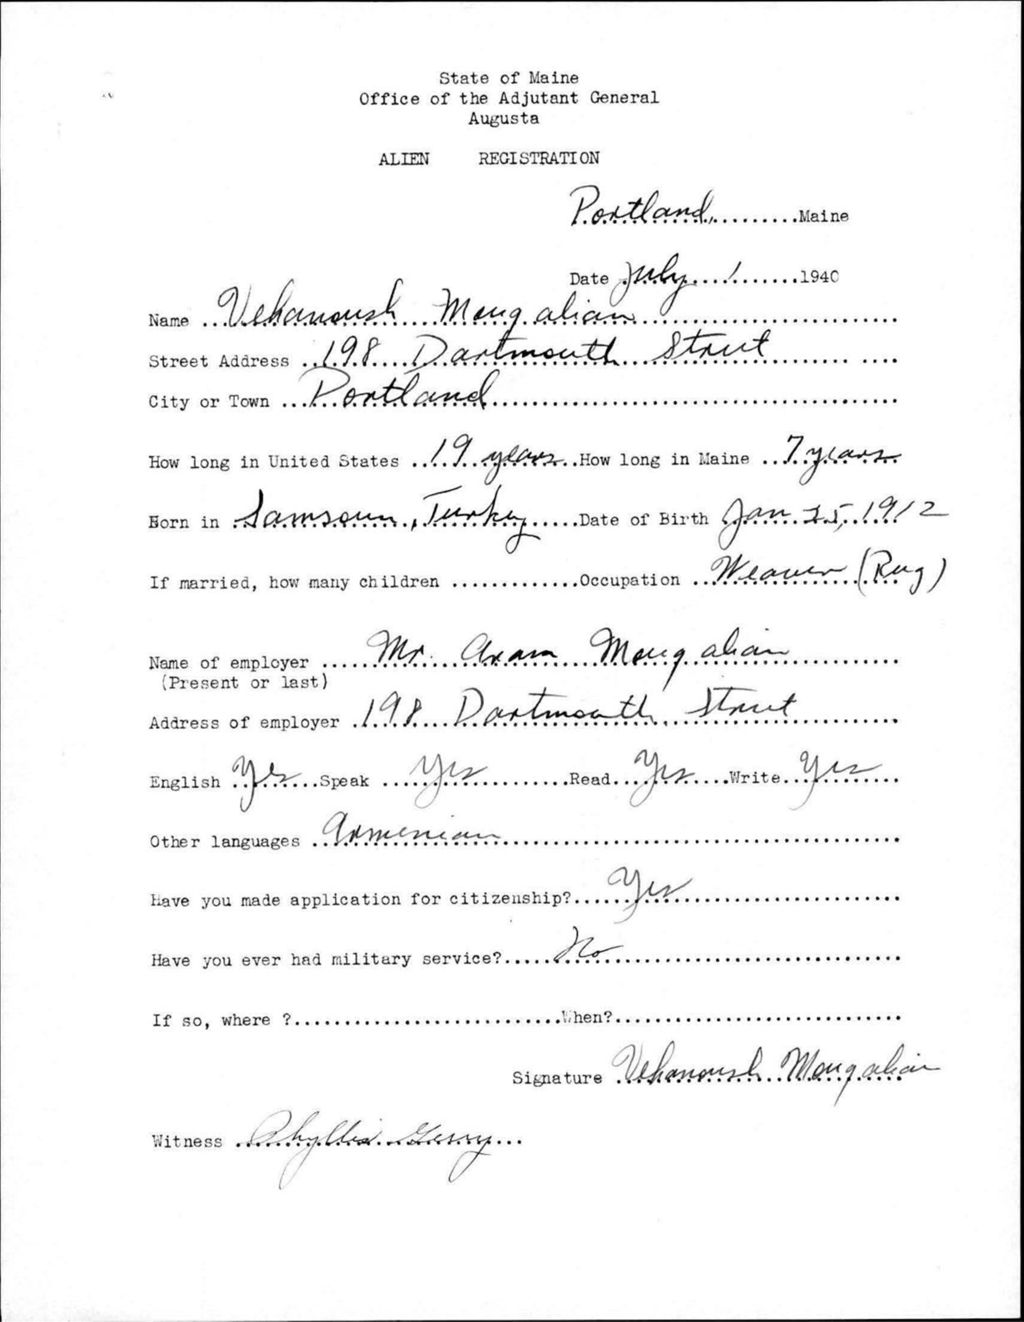 State of Maine
Office of the Adjutant General
Augusta
ALIEN REGISTRATION
Portland, Maine
Date July 1 1940
Name Vehanoush Mougalian
Street Address 198 Dartmouth Street
City or Town Portland
How long in United States 19 years How long in Maine 7 years
Born in Samsoun, Turkey Date of Birth Jan 25, 1912
If married, how many children Occupation Weaver (Rug)
Name of employer Mr. Aram Mougalian
(Present or last)
Address of employer 198 Dartmouth Street
English Yes Speak Yes Read Yes Write Yes
Other languages Armenian
Have you made application for citizenship? Yes
Have you ever had military service? No
If so, where ? When?
Signature Vehanoush Mougalian
Witness Phyllis